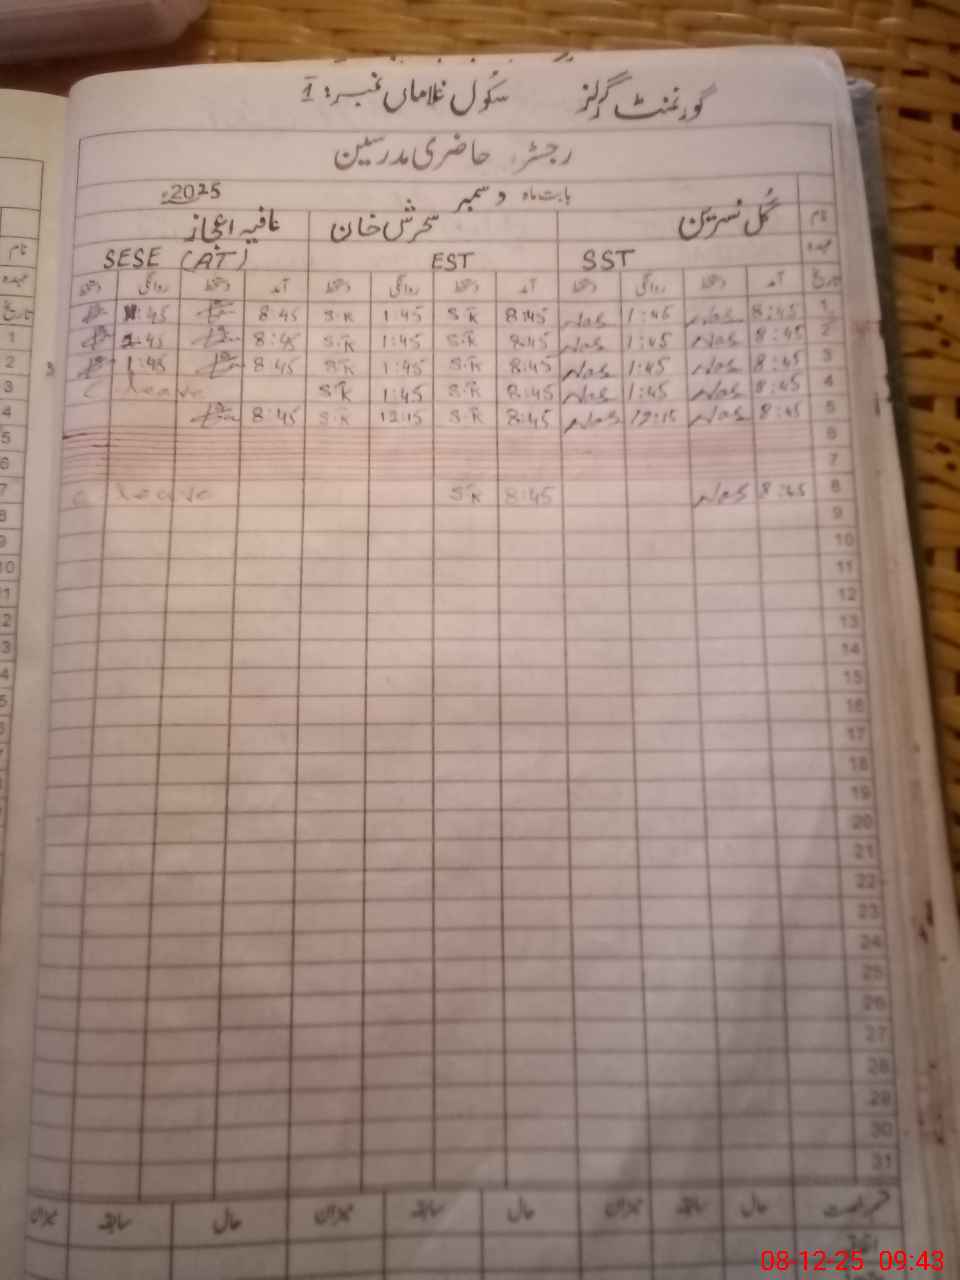 گورنمنٹ گرلز سکول غلاماں نمبر: 1
رجسٹر حاضری مدرسین
بابت ماہ دسمبر 2025ء
نام گل نسرین سحرش خان عافیہ اعجاز
عہدہ SST EST SESE (AT)
تاریخ آمد دستخط روانگی دستخط آمد دستخط روانگی دستخط آمد دستخط روانگی دستخط
1 8:45 Nas 1:45 Nas 8:45 S.K 1:45 S.K 8:45 1:45
2 8:45 Nas 1:45 Nas 8:45 S.K 1:45 S.K 8:45 1:45
3 8:45 Nas 1:45 Nas 8:45 S.K 1:45 S.K 8:45 1:45
4 8:45 Nas 1:45 Nas 8:45 S.K 1:45 S.K C leave
5 8:45 Nas 12:15 Nas 8:45 S.K 12:15 S.K 8:45
6
7
8 8:45 Nas 8:45 S.K C leave
9
10
11
12
13
14
15
16
17
18
19
20
21
22
23
24
25
26
27
28
29
30
31
حال سابقہ میزان حال سابقہ میزان حال سابقہ میزان
08-12-25 09:43